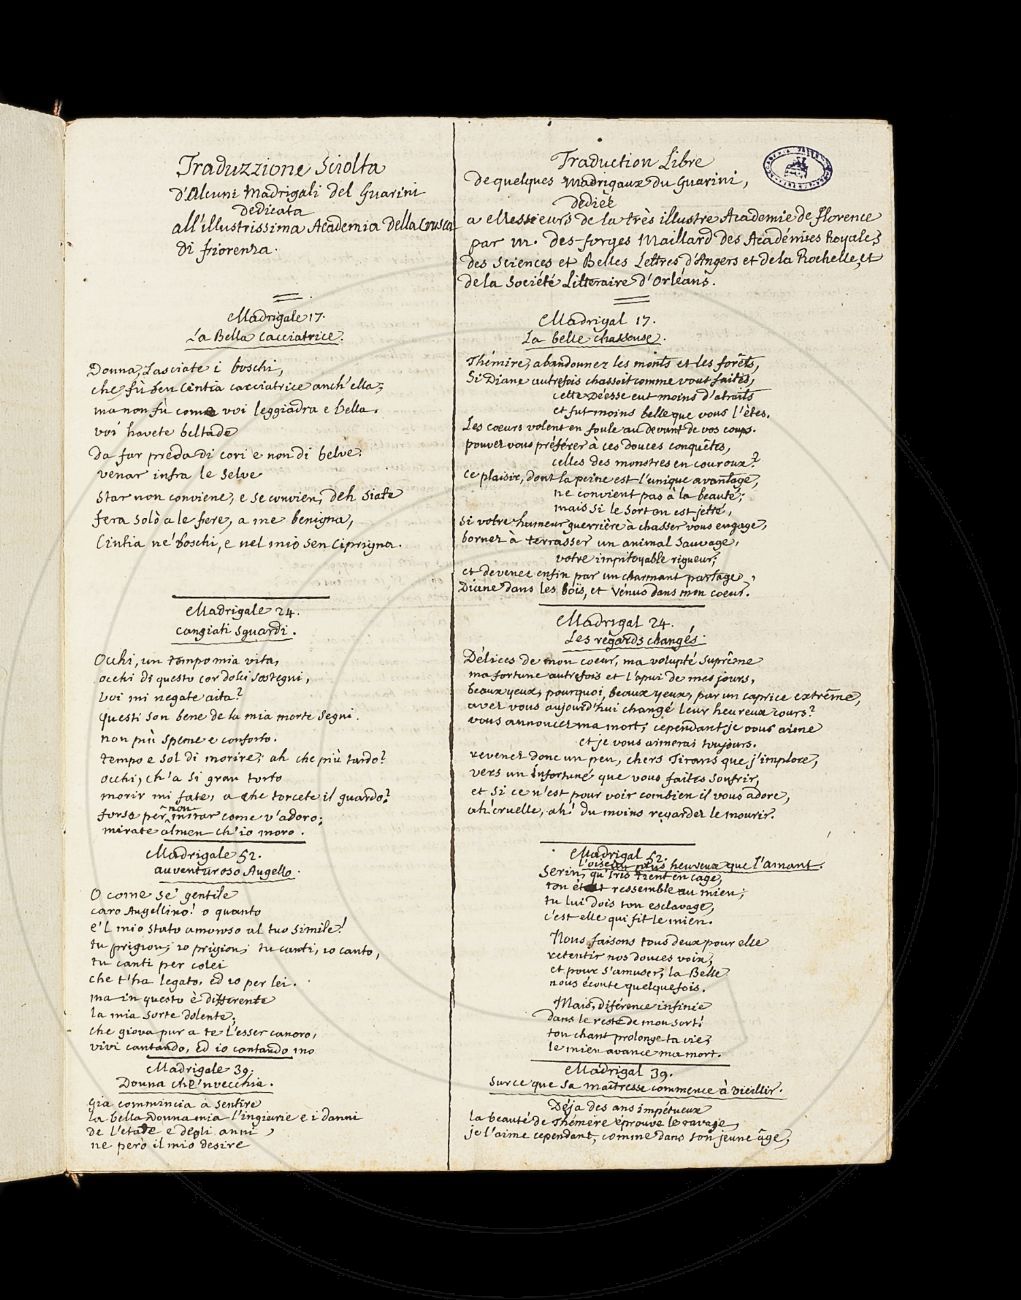 Traduzzione Sciolta
d'Alcuni Madrigali del Guarini
Dedicata
all'illustrissima Academia della Crusca
di fiorenza.
Madrigale 17.
La Bella Cacciatrice.
Donna, Lasciate i boschi,
che fù ben Cintia cacciatrice anch'ella;
ma non fù come voi leggiadra e bella.
voi havete beltade
da far preda di cori e non di belve.
venar infra le selve
star non conviene, e se convien, deh siate
fera solò a le fere, a me benigna,
Cintia ne' boschi, e nel mio sen Ciprigna.
Madrigale 24.
cangiati sguardi.
Occhi, un tempo mia vita,
occhi di questo cor dolci sostegni,
voi mi negate aita?
questi son bene de la mia morte segni.
non più speme e conforto.
tempo e sol di morire, ah che più tardo?
occhi, ch'a si gran torto
morir mi fate, a che torcete il guardo?
forse per non mirar come v'adoro;
mirate almen ch'io moro.
Madrigale 52.
auventuroso Augello.
O come se' gentile
caro Augellino! o quanto
e'l mio stato amoroso al tuo simile!
tu prigion, io prigion; tu canti, io canto,
tu canti per colei
che t'ha legato, ed io per lei.
ma in questo è differente
la mia sorte dolente;
che giova pur a te l'esser canoro,
vivi cantando, ed io cantando mo
Madrigale 39.
Donna che'nvecchia.
già commincia à sentire
la bella donna mia l'ingiurie e i danni
de l'etade e degli anni,
ne però il mio desire
Traduction Libre
de quelques Madrigaux du Guarini,
Dediéè
a Messieurs de la très illustre Academie de florence
par m. des-forges Maillard des Académies Royales
des Sciences et Belles Lettres d'Angers et de la Rochelle, et
de la Société Litteraire d'Orléans.
Madrigal 17.
La belle chasseuse.
Thémire, abandonnez les monts et les forêts,
Si Diane autrefois chassoit comme vous faites,
cette Déesse eut moins d'atraits
et fut moins belle que vous l'êtes.
Les cœurs volent en foule au devant de vos coups.
pouvez vous préférer à ces douces conquêtes,
celles des monstres en couroux?
ce plaisir, dont la peine est l'unique avantage,
ne convient pas à la beauté;
mais si le Sort en est jetté,
si votre humeur guerrière à chasser vous engage,
bornez à terrasser un animal sauvage,
votre impitoyable rigueur;
et devenez enfin par un charmant partage,
Diane dans les bois, et Vénus dans mon coeur.
Madrigal 24.
Les regards changés.
Délices de mon coeur, ma volupté suprême
ma fortune autrefois et l'apui de mes jours,
beaux yeux, pourquoi, beaux yeux, par un caprice extrême,
avez vous aujourd'hui changé leur heureux cours?
vous annoncez ma mort; cependant je vous aime
et je vous aimerai toujours.
revenez donc un peu, chers Tirans que j'implore,
vers un infortuné que vous faites soufrir,
et si ce n'est pour voir combien il vous adore,
ah! cruelle, ah! du moins regardez le mourir.
Madrigal 52.
l'oiseau plus heureux que l'amant.
Serin, qu'Iris tient en cage,
ton état ressemble au mien;
tu lui dois ton esclavage,
c'est elle qui fit le mien.
Nous faisons tous deux pour elle
retentir nos douces voix,
et pour s'amuser, la Belle
nous écoute quelquefois.
Mais, diférence infinie
dans le reste de mon sort!
ton chant prolonge ta vie,
le mien avance ma mort.
Madrigal 39.
Sur ce que sa maîtresse commence à vieillir.
Déja des ans impétueux
la beauté de Thémire éprouve le ravage,
je l'aime cependant, comme dans son jeune âge,